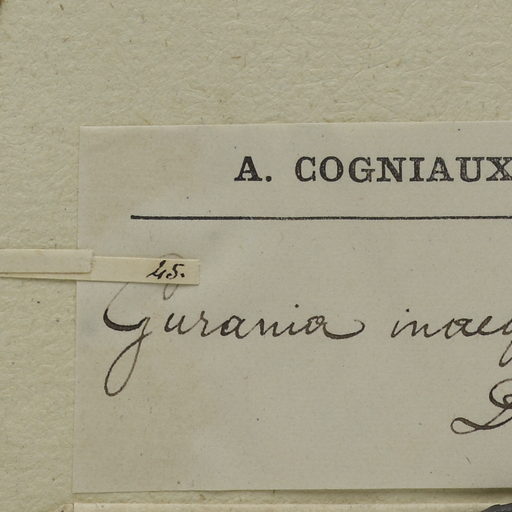 A. COGNIAUX
45.
Gurania inaeq